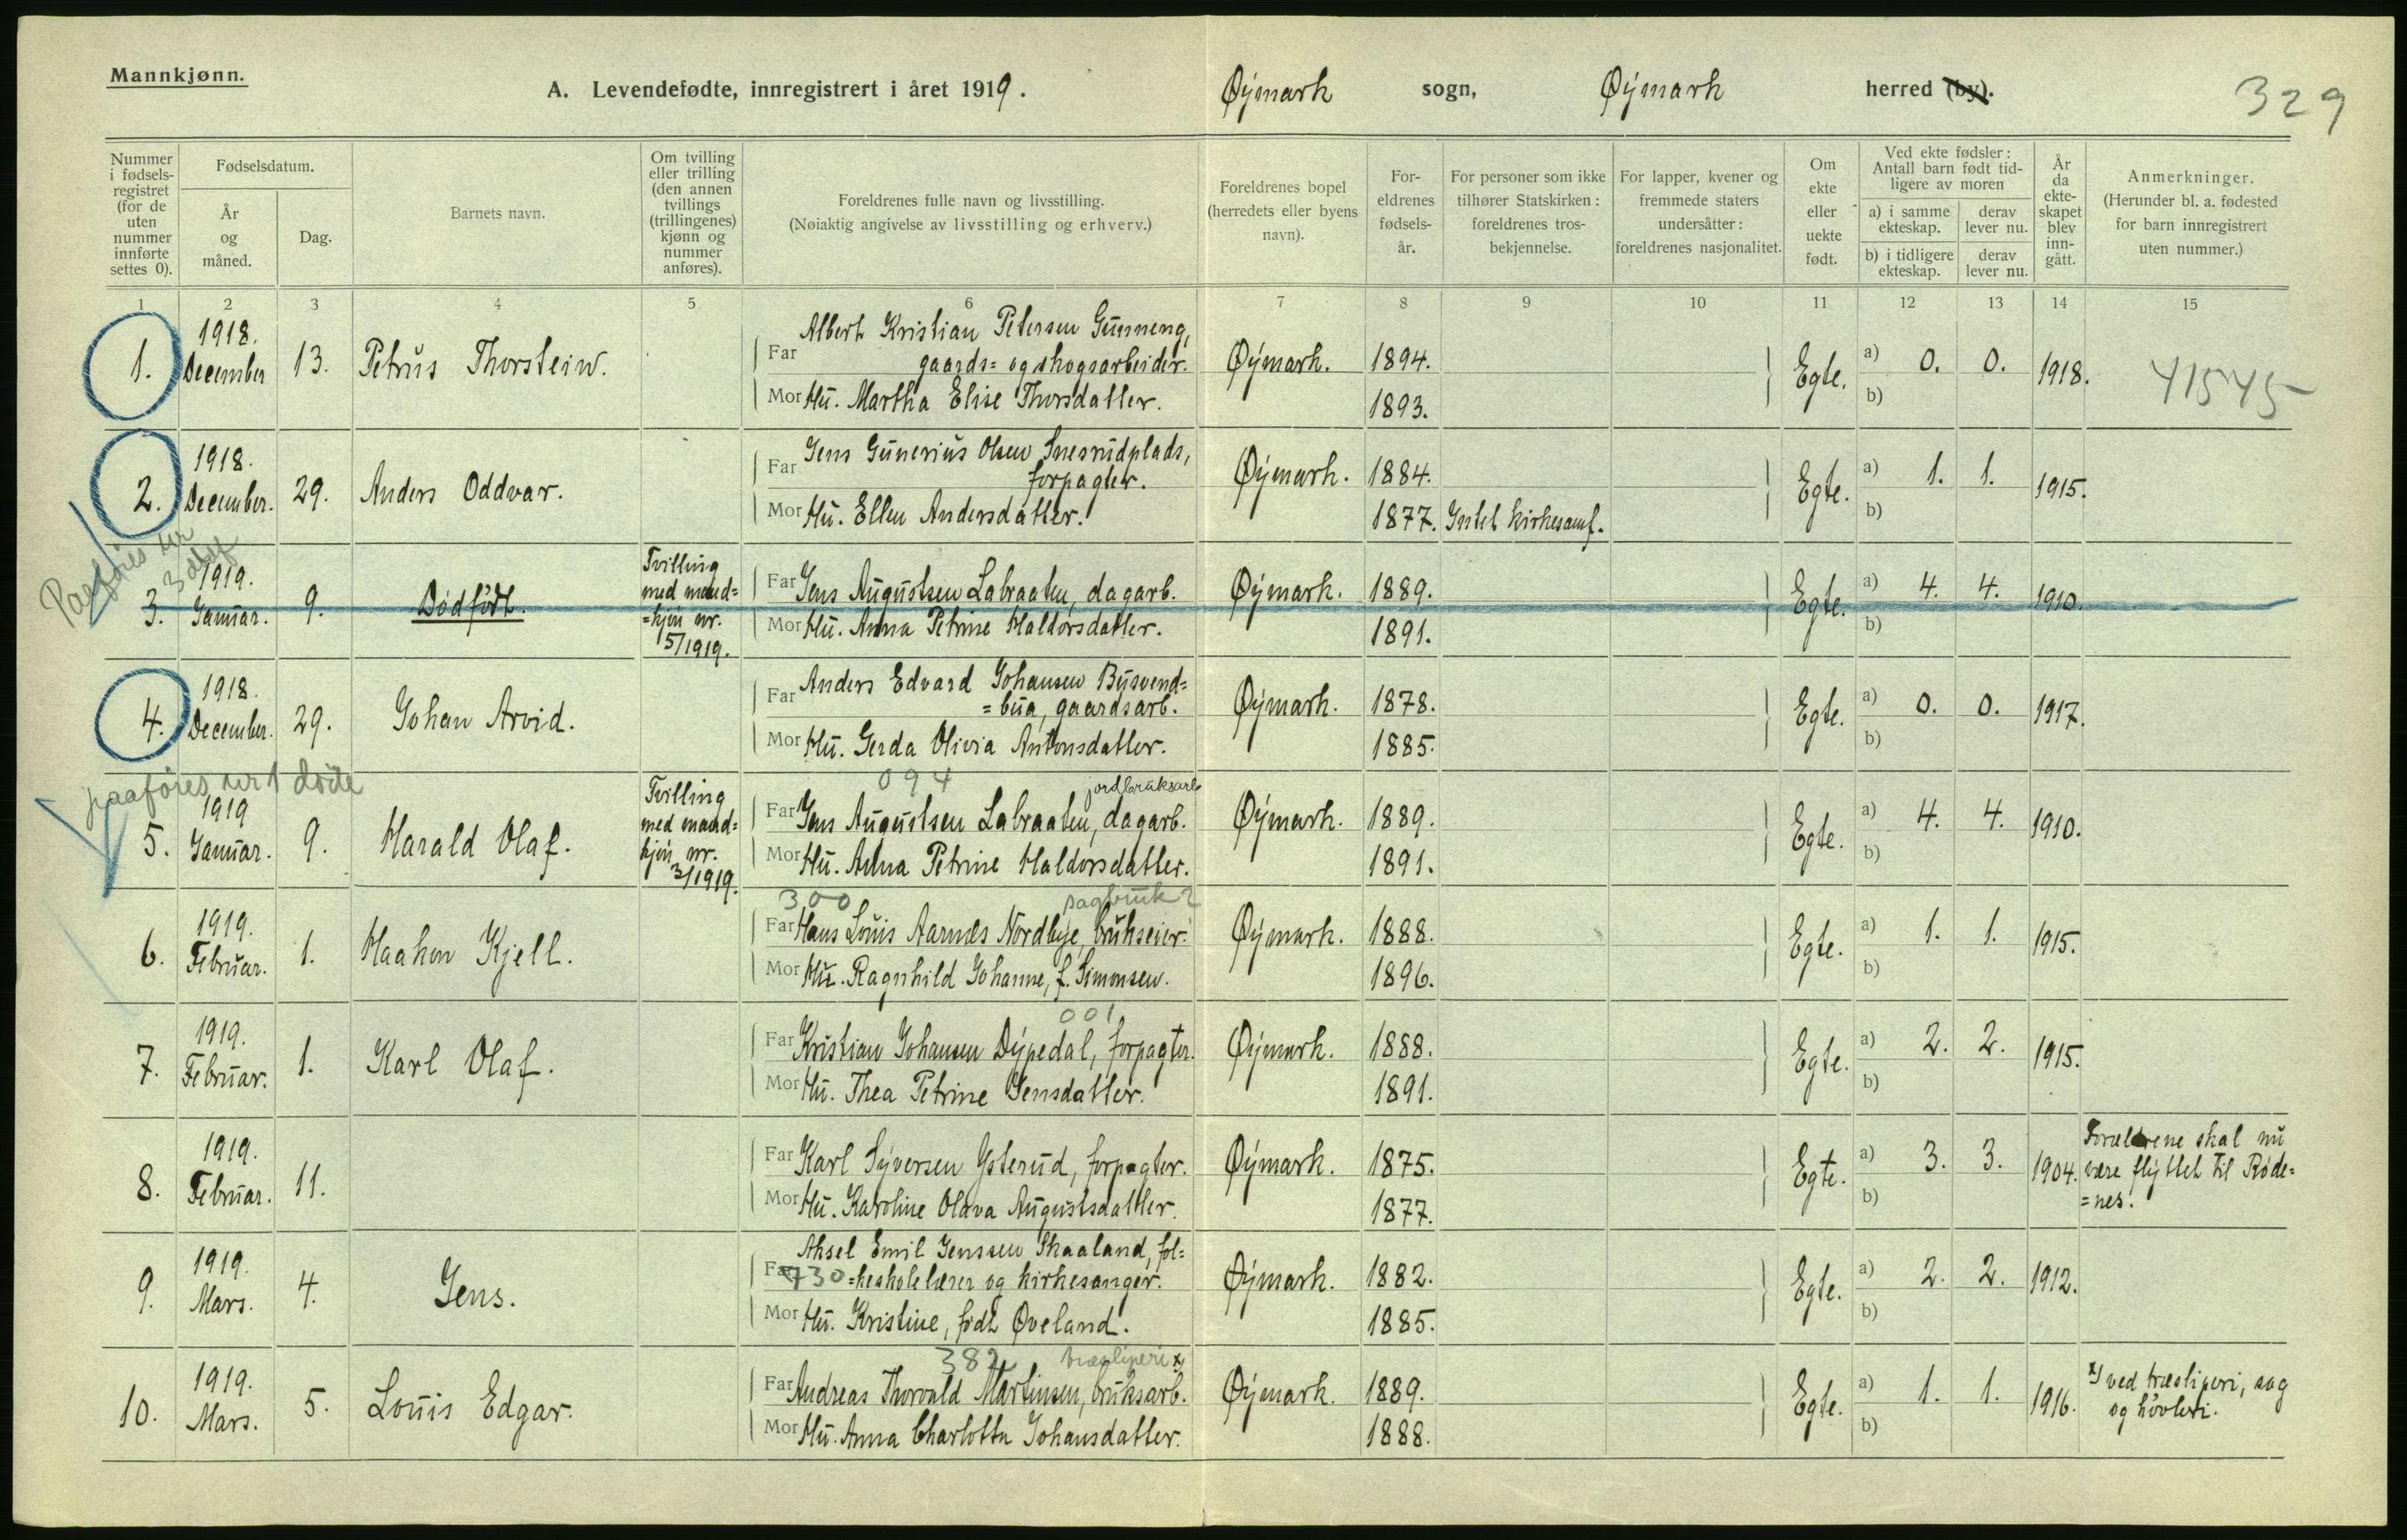 Mannkjønn.
A. Levendefødte, innregistrert i året 1919.
Øymark sogn, Øymark herred (by).
329
Nummer i fødsels-registret (for de uten nummer innførte settes 0).
Fødselsdatum.
År og måned.
Dag.
Barnets navn.
Om tvilling eller trilling (den annen tvillings (trillingenes) kjønn og nummer anføres).
Foreldrenes fulle navn og livsstilling.
(Nøiaktig angivelse av livsstilling og erhverv.)
Foreldrenes bopel (herredets eller byens navn).
For-eldrenes fødsels-år.
For personer som ikke tilhører Statskirken: foreldrenes tros-bekjennelse.
For lapper, kvener og fremmede staters undersåtter: foreldrenes nasjonalitet.
Om ekte eller uekte født.
Ved ekte fødsler: Antall barn født tid-ligere av moren
a) i samme ekteskap.
derav lever nu.
b) i tidligere ekteskap.
derav lever nu.
År da ekte-skapet blev inn-gått.
Anmerkninger.
(Herunder bl. a. fødested for barn innregistrert uten nummer.)
1 2 3 4 5 6 7 8 9 10 11 12 13 14 15
1. 1918. December 13. Petrus Thorstein.
Far Albert Kristian Petersen Gunneng,
gaards= og skogsarbeider. Øymark. 1894. Egte. a) 0. 0. 1918. 41545
Mor Hu. Martha Elise Thorsdatter. 1893. b)
2. 1918. December. 29. Anders Oddvar.
Far Jens Gunerius Olsen Snesrudplads,
forpagter. Øymark. 1884. Egte. a) 1. 1. 1915.
Mor Hu. Ellen Andersdatter. 1877. Intet kirkesamf. b)
Paaføres nr
3 dødf
3. 1919. Januar. 9. Dødfødt. Tvilling
med mand=
=kjøn nr.
5/1919.
Far Jens Augustsen Labraaten, dagarb. Øymark. 1889. Egte. a) 4. 4. 1910.
Mor Hu. Anna Petrine Haldorsdatter. 1891. b)
4. 1918. December. 29. Johan Arvid.
Far Anders Edvard Johansen Busvend=
=bua, gaardsarb. Øymark. 1878. Egte. a) 0. 0. 1917.
Mor Hu. Gerda Olivia Antonsdatter. 1885. b)
paaføres nr 1 døde
094 jordbruksarb
5. 1919 Januar. 9. Harald Olaf. Tvilling
med mand=
kjøn nr.
3/1919.
Far Jens Augustsen Labraaten, dagarb. Øymark. 1889. Egte. a) 4. 4. 1910.
Mor Hu. Anna Petrine Haldorsdatter. 1891. b)
300 sagbruk?
6. 1919. Februar. 1. Haakon Kjell.
Far Hans Louis Aarnæs Nordbye, brukseier. Øymark. 1888. Egte. a) 1. 1. 1915.
Mor Hu. Ragnhild Johanne, f. Simonsen. 1896. b)
001
7. 1919. Februar. 1. Karl Olaf.
Far Kristian Johansen Dypedal, forpagter. Øymark. 1888. Egte. a) 2. 2. 1915.
Mor Hu. Thea Petrine Jensdatter. 1891. b)
8. 1919. Februar. 11.
Far Karl Syversen Ysterud, forpagter. Øymark. 1875. Egte. a) 3. 3. 1904. Forældrene skal nu
være flyttet til Røde=
=nes.
Mor Hu. Karoline Olava Augustsdatter. 1877. b)
9. 1919. Mars. 4. Jens.
Far Aksel Emil Jenssen Skaaland, fol=
730 =keskolelærer og kirkesanger. Øymark. 1882. Egte. a) 2. 2. 1912.
Mor Hu. Kristine, født Øveland. 1885. b)
382 træsliperi x)
10. 1919. Mars. 5. Louis Edgar.
Far Andreas Thorvald Martinsen, bruksarb. Øymark. 1889. Egte. a) 1. 1. 1916. x) ved træsliperi, sag
og høvleri.
Mor Hu. Anna Charlotta Johansdatter. 1888. b)